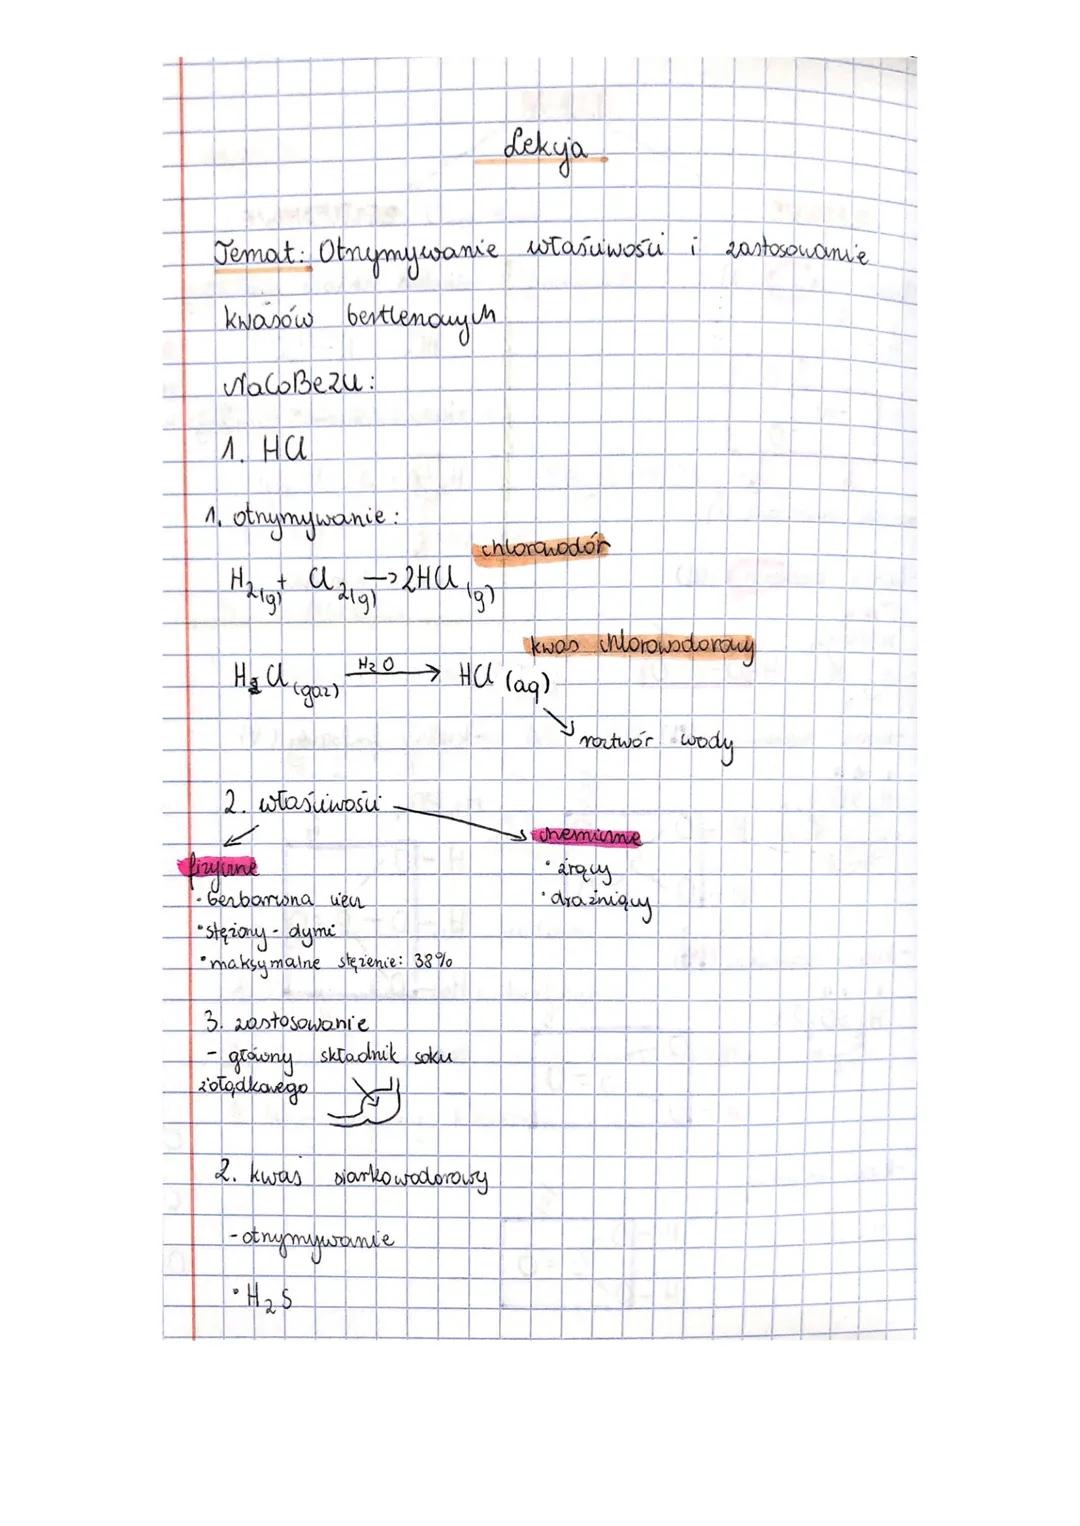 Lekcja
Temat: Otrzymywanie właściwości i zastosowanie
kwasów beztlenowych
NaCoBeZU:
1. HCl
1. otrzymywanie:
chlorowodór
H2(g) + Cl2(g) → 2HCl (g)
kwas chlorowodorowy
HCl (gaz) H2O → HCl (aq)
roztwór wody
2. właściwości
chemiczne
fizyczne
• żrący
• bezbarwna ciecz
• drażniący
• stężony - dymi
• maksymalne stężenie: 38%
3. zastosowanie
- główny składnik soku
żołądkowego
2. kwas siarkowodorowy
- otrzymywanie
• H2S